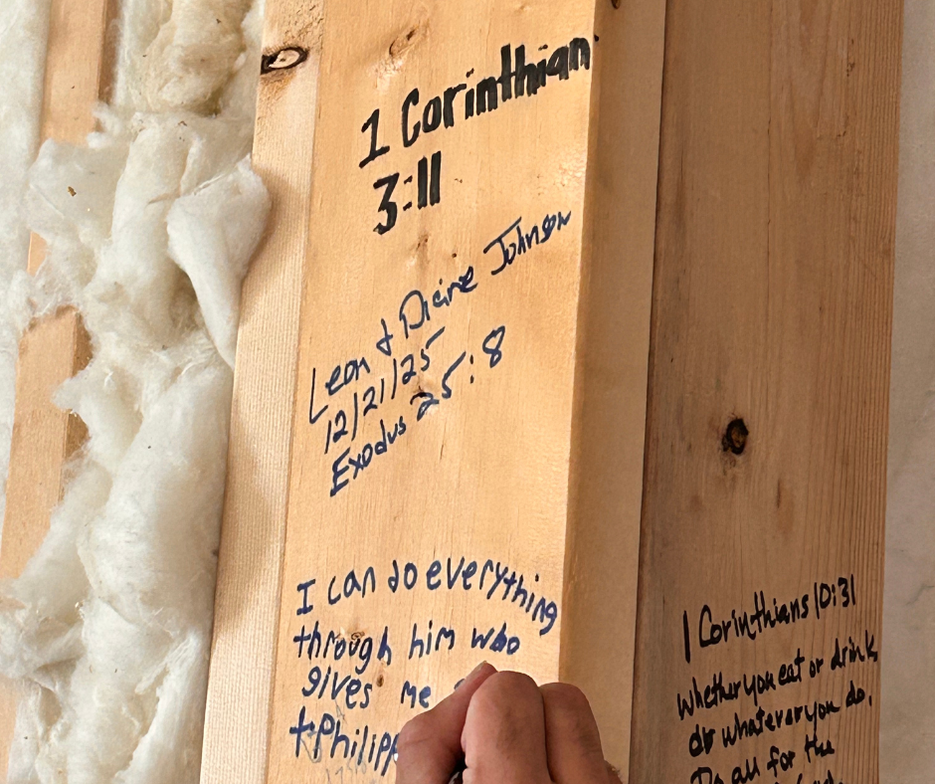 1 Corinthian
3:11
Leon & Diane Johnson
12/21/25
Exodus 25:8
I can do everything
through him who
gives me
Philipp
1 Corinthians 10:31
Whether you eat or drink,
or whatever you do,
Do all for the